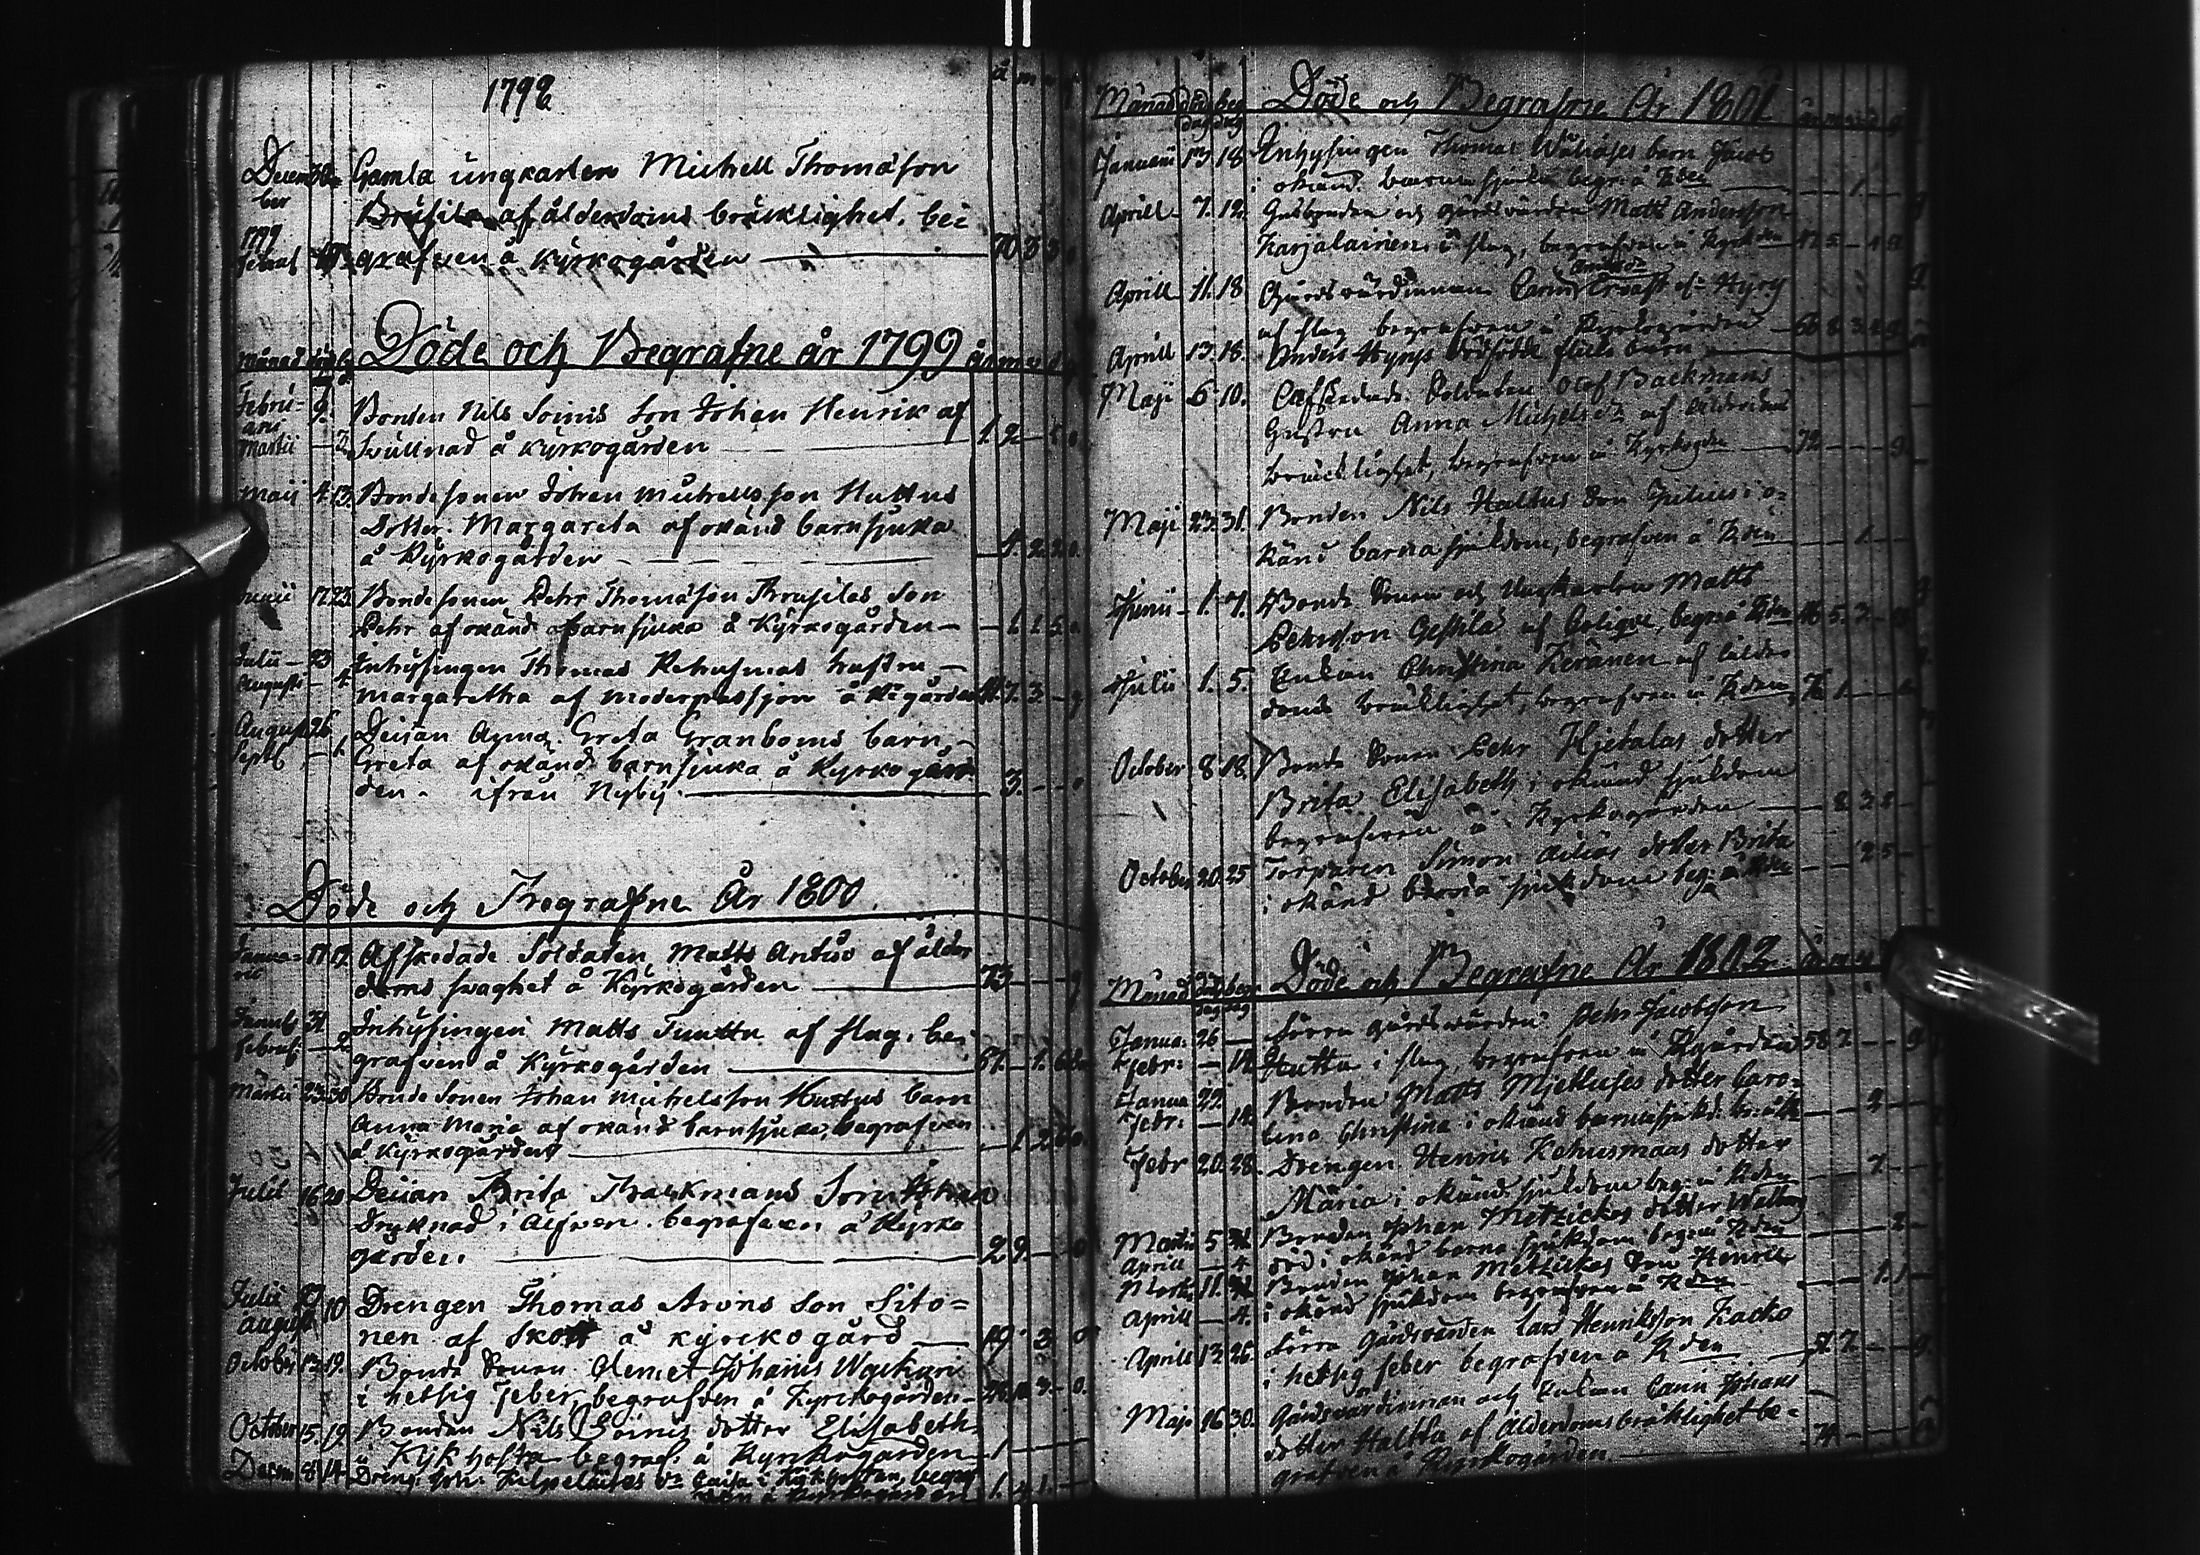 1798
å m
Decem 30 Gamla ungkarlen Michell Thomasson
ber
Brusila af ålderdoms bräcklighet, be
1799
grafven å Kyrkogården 70 3 3
Månad Döde och Begrafne år 1799
Febru- 9. Bonden Nils Soinis son Johan Henrik af
ari
Martii — 3 Svullnad å Kyrkogården 1. 2
Maii 4. 13. Bondesonen Johan Michellsson Huttus
Dotter Margareta af okänd barnsjuka
å Kyrkogården 4. 2. 2. 0
Junii 17. 23. Bondesonen Pehr Thomasson Brusilas Son
Pehr af okänd barnsjuka å Kyrkogården
Julii 23 Inhysingen Thomas Kehusmas hustru
Augusti — 4. Margaretha af moderpassion å K:gården 7. 3
August 26 Deijan Anna Greta Granboms barn
Sept — 1. Greta af okänd barnsjuka å Kyrkogår
den. ifrån Nyby 3.
Döde och Begrafne År 1800.
Janua- 17 19. Afskedade Soldaten Matts Antus af ålder
rii
doms svaghet å Kyrkogården 73
Januarii 31 Inhysingen Matts Tuuttu af slag, be-
Febru: — 2. grafven å Kyrkogården 61.
Martii 23 30 Bonde Sonen Johan Michelsson Huttus barn
Anna Maria af okänd barnsjuka, begrafven
å Kyrkogården
Julii 16 20 Deijan Brita Backmans Son
Druknad i Älfven. begrafven å Kyrko
gården. 2 9.
Julii 27
August 10 Drengen Thomas Arons Son Sito=
nen af Skott å kyrckogård 19. 3
October 12. 19. Bonde Sonen Clemet Johanis
i hetsig feber, begrafven å Kyrckogården
October 15. 19. Bonden Nils Soinis dotter Elisabeth
i Kikhosta begraf: å Kyrkogården 1
Decem 8 14. Dreng. Joh: Kilpeläises Dr Caisa i Kikhostan, begraf
ven å Kyrkogården 1. 4. 1.
Månad död beg Döde och Begrafne År 1801
dag dag
Januarii 13 18. Inhysingen Thomas barn Jacob
i okänd barnasjuka begr: å Kden 1
Aprill 7. 12. Husbonden och Gårdsvärden Matts Andersson
Karjalainen i slag, begrafven å Kyrkden
Aprill 11. 18. Gårdsvärdinnan Carin
af slag begrafven å Kyrkogården
Aprill 13. 18. Anders Hyrys dödfödde
Maji 6 10. Afskedade Soldaten Olof Backmans
Hustru Anna Michelsdr af ålderdoms
bräcklighet, begrafven å Kyrkogden 72
Maji 23. 31. Bonden Nils Haltus Son Julius i o=
känd barnasjukdom, begrafven å Kden 1
Junii 1. 7. Bonde Sonen och Ungkarlen Matts
Pehrsson af Colique, begr: å Kden
Julii 1. 5. Enkian Christina Keränen af ålder
doms bräcklighet, begrafven å Kden
October 8 18. Bonde Sonen Pehr Hjetalas dotter
Brita Elisabeth i okänd sjukdom
begrafven å Kyrkogården 8. 3.
October 20. 25 Torparen Simon dotter Brita
i okänd barna sjukdom beg: å Kden
Månad död begr Döde och Begrafne År 1802.
dag dag
Janua: 26 — Förra gårdsvärden Pehr Jacobsson
Febr: — 14. Hutta i slag, begrafven å Kgården 58 7
Janua 29. Bonden Matts Mjetluses dotter Caro-
Febr: — 14. lina Christina i okänd barnasjukd: be: å K 2
Febr 20. 28. Drengen Henric Kehusmaas dotter
Maria i okänd sjukdom beg: å Kden 7
Martii 5 Bonden Johan Metzickos dotter Walborg
Aprill — 4. död i okänd barna sjukdom begr: å Kden 2
Martii 11. Bonden Johan Metzickos Son Henric
Aprill — 4. i okänd sjukdom begrafven å Kden 1. 1
Aprill 13. 26. Förra Gårdsvärden Lars Henriksson Kacko
i hetsig feber begrafven å Kden
Maji 16 30. Gårdsvärdinnan och Enkan Carin Johans
dotter Haltta af Ålderdoms bräklighet be-
grafven å Kyrkogården 74